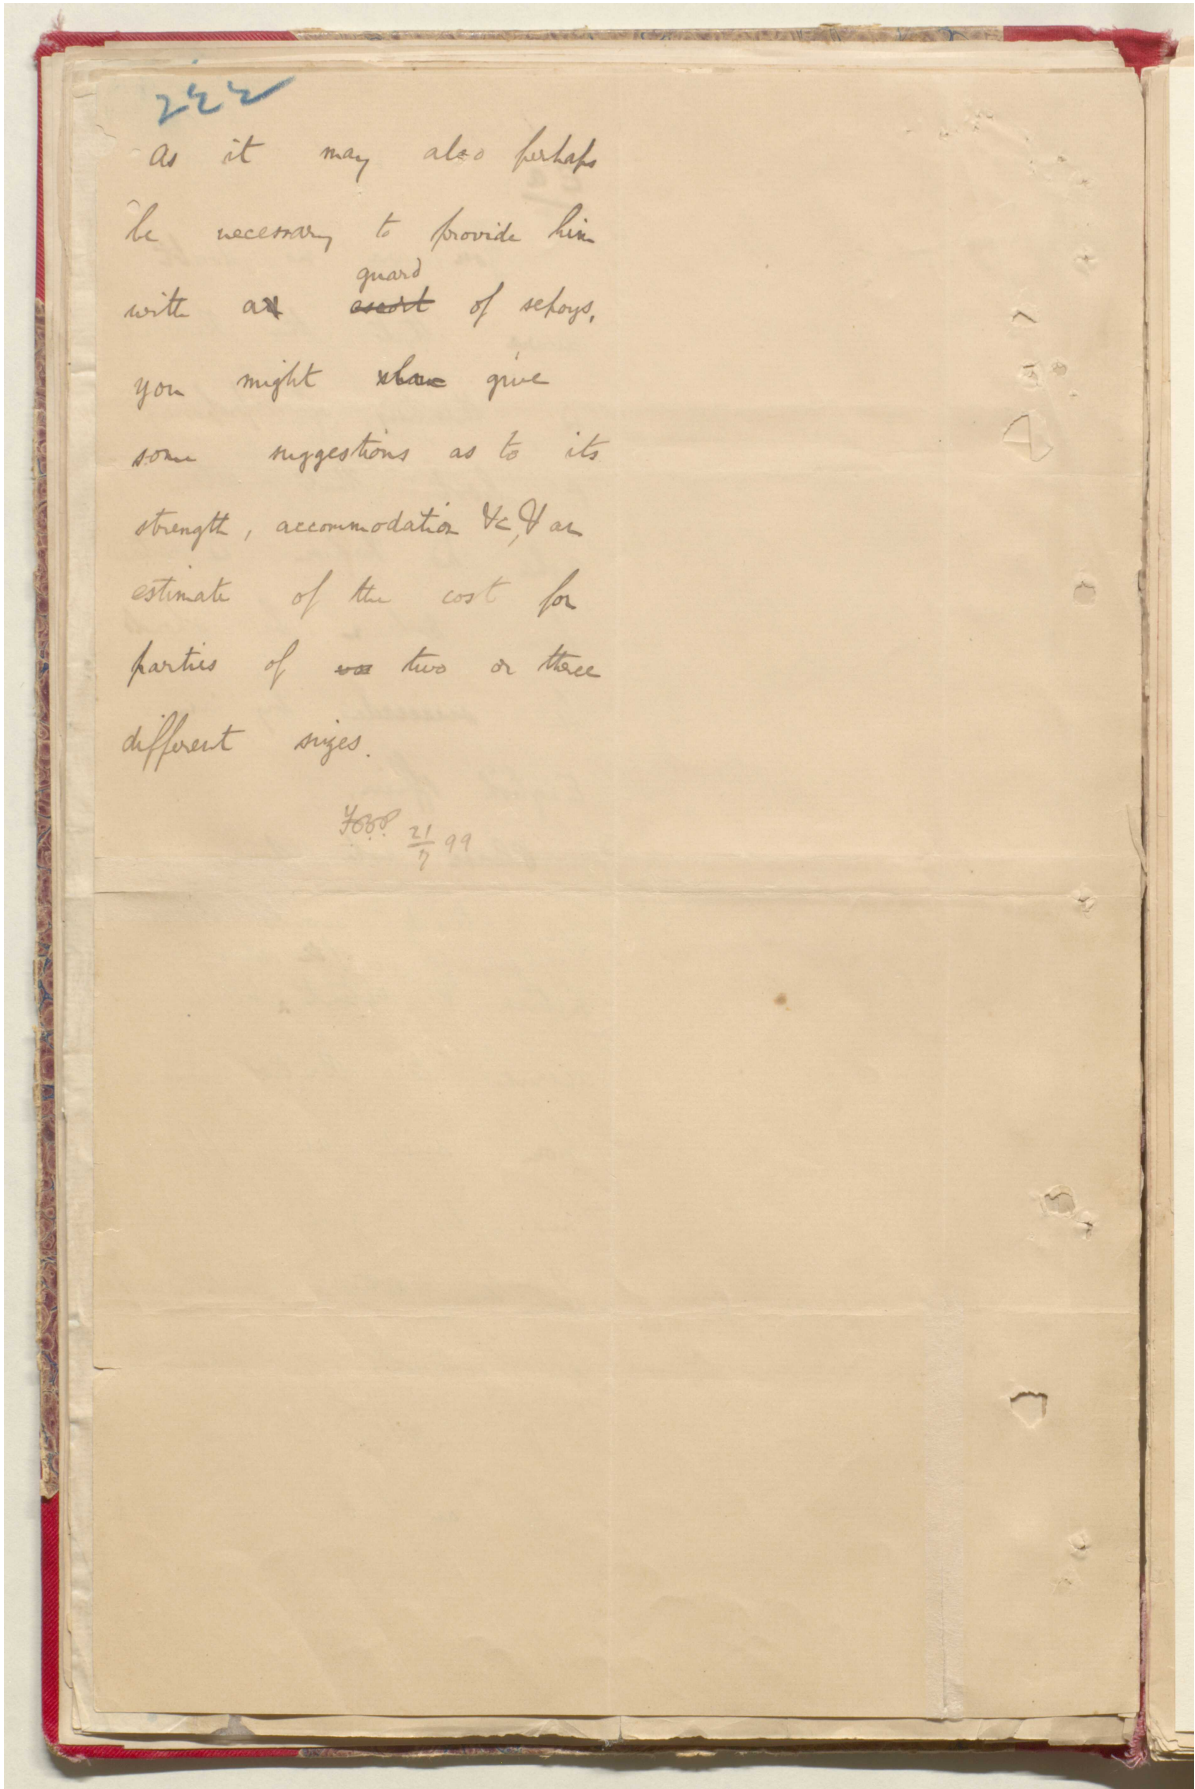 as it may also perhaps
be necessary to provide him
guard
with a escort of sepoys,
you might give
some suggestions as to its
strength, accommodation &c, & an
estimate of the cost for
parties of two or three
different sizes.
21/7 99